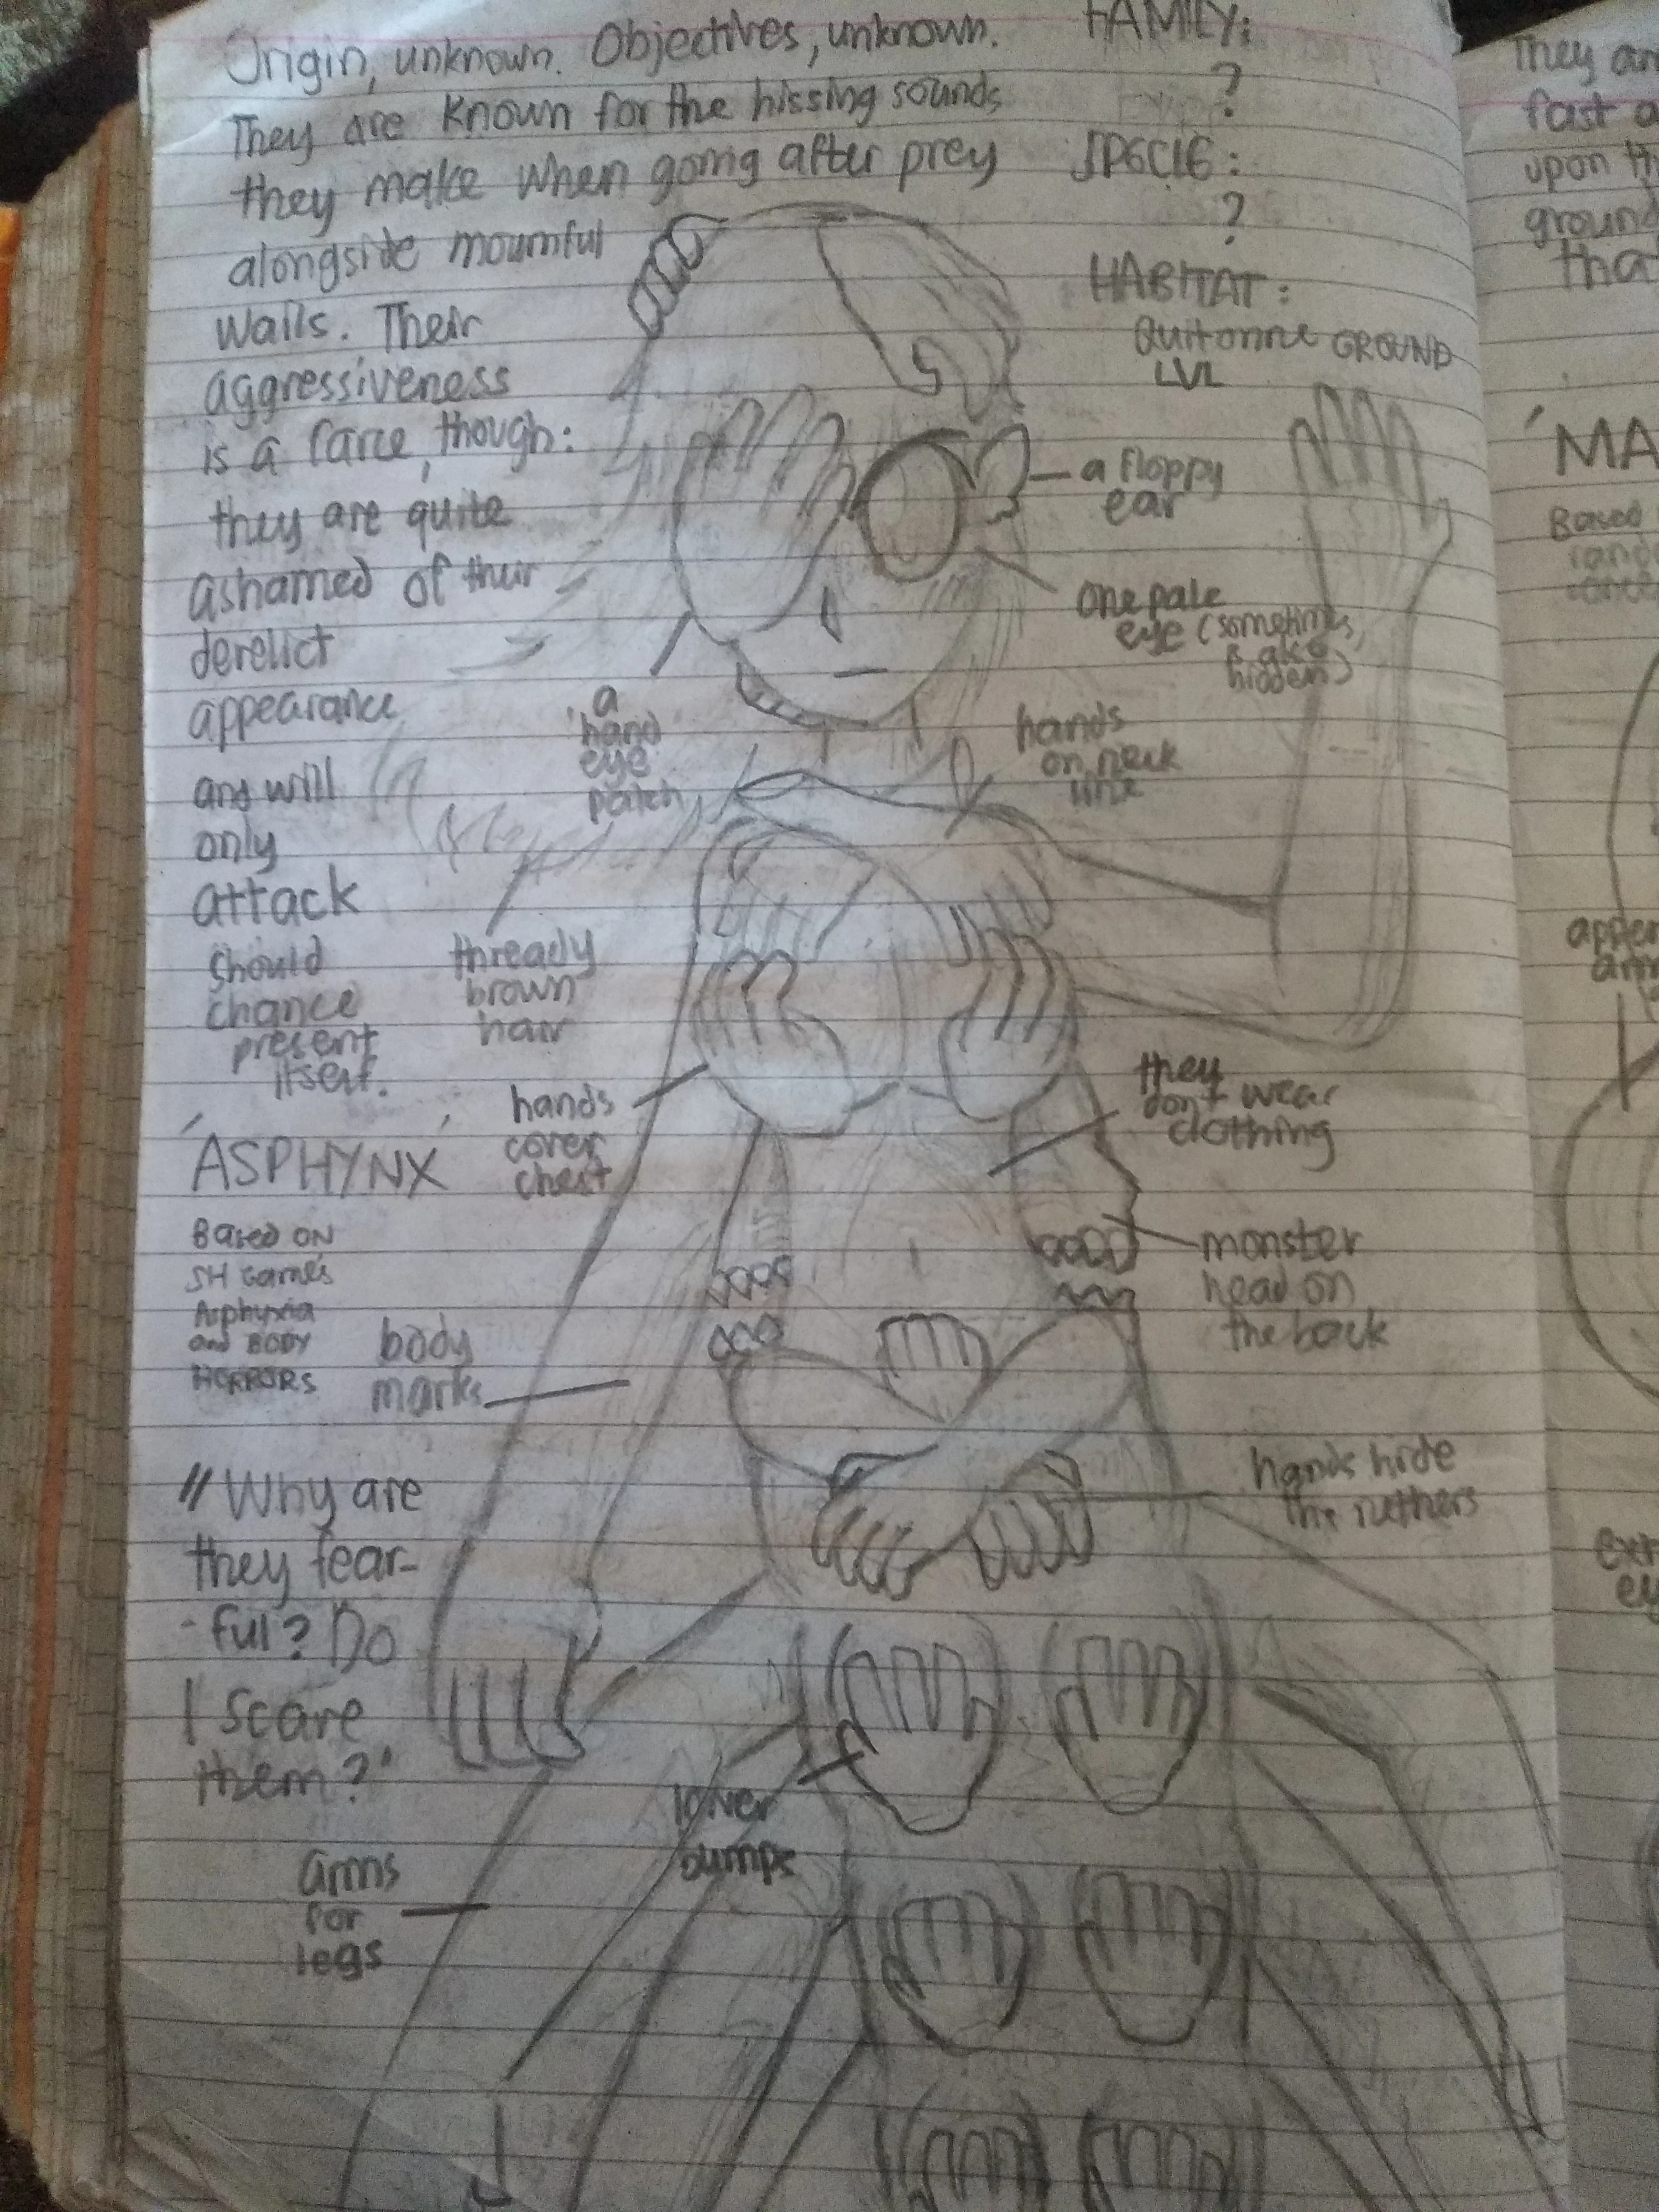 Origin, unknown. Objectives, unknown.
They are known for the hissing sounds
they make when going after prey
alongside mournful
wails. Their
aggressiveness
is a farce, though:
they are quite
ashamed of their
derelict
appearance
and will
only
attack
should
chance
present
itself.
FAMILY:
?
SPECIE:
?
HABITAT:
Quitonne GROUND
LVL
a floppy
ear
one pale
eye (sometimes
is also
hidden)
a
'hand
eye'
patch
hands
on neck
line
thready
brown
hair
hands
cover
chest
they
don't wear
clothing
'ASPHYNX'
Based ON
SH game's
Asphyxia
and BODY
HORRORS
body
marks
monster
head on
the back
hands hide
the
"Why are
they fear-
-ful? Do
I scare
them?'
lower
bumps
arms
for
legs
They are
fast a
upon th
ground
that
'MA
Based
appen